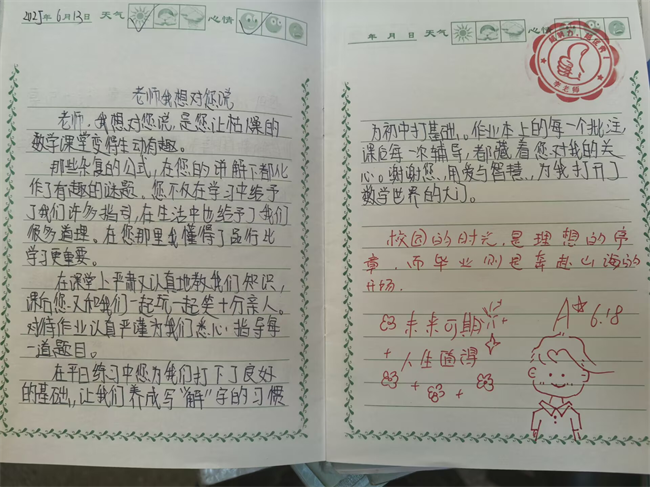 2025年6月13日 天气 心情
老师我想对您说
老师,我想对您说,是您让枯燥的
数学课堂变得生动有趣。
那些杂复的公式,在您的讲解下都化
作了有趣的谜题。您不仅在学习中给予
了我们许多指引,在生活中也给予了我们
很多道理。在您那里我懂得了品行比
学习更重要。
在课堂上严肃又认真地教我们知识,
课后您又和我们一起玩一起笑十分亲人。
对待作业认真严谨为我们悉心指导每
一道题目。
在平日练习中您为我们打下了良好
的基础,让我们养成写“解”字的习惯
年 月 日 天气 心情
为初中打基础。作业本上的每一个批注,
课后每一次辅导,都藏着您对我的关
心。谢谢您,用爱与智慧,为我打开了
数学世界的大门。
校园的时光,是理想的序
章,而毕业则是奔赴山海的
开场.
未来可期
人生值得
A 6.18